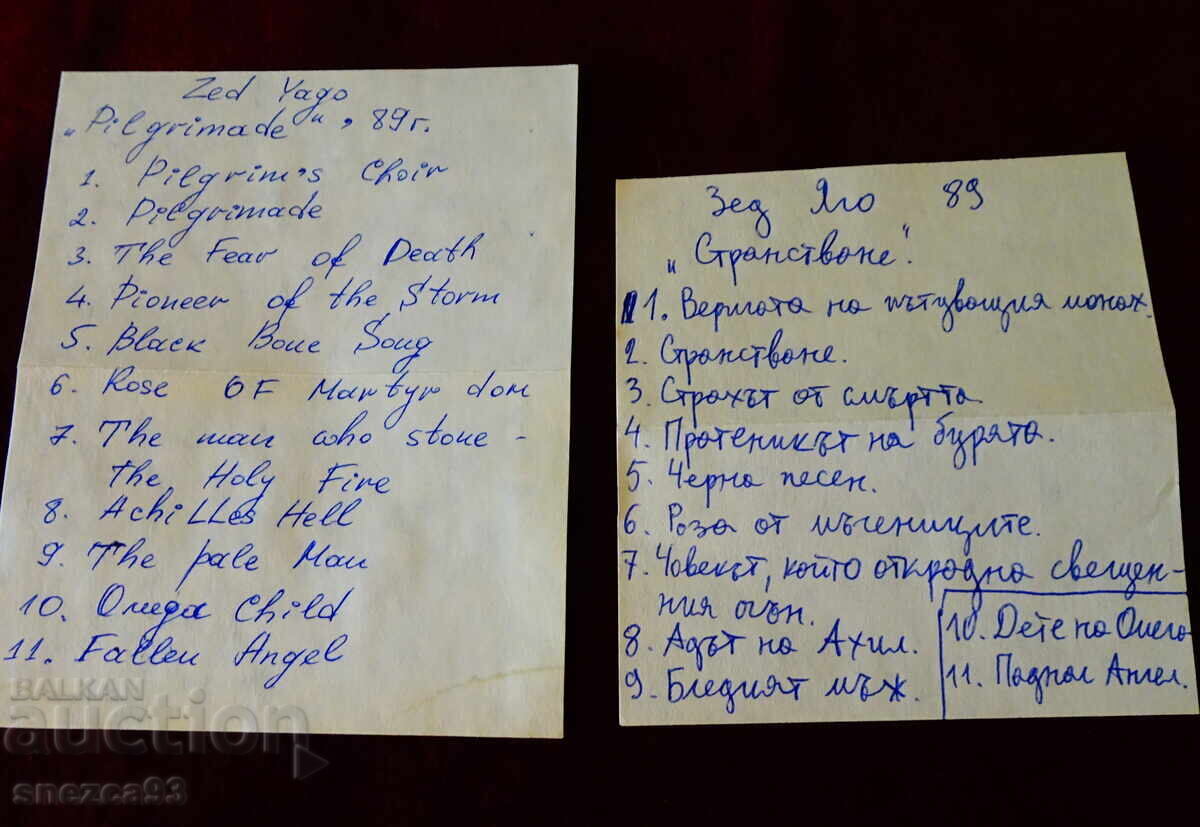 Zed Yago
„Pilgrimade“, 89г.
1. Pilgrim's Choir
2. Pilgrimade
3. The Fear of Death
4. Pioneer of the Storm
5. Black Bone Song
6. Rose OF Martyr dom
7. The man who stone -
the Holy Fire
8. AchiLLes Hell
9. The pale Man
10. Omega Child
11. Fallen Angel
Зед Яго 89
„Странстване“.
1. Веригата на пътуващия монах.
2. Странстване.
3. Страхът от смъртта.
4. Пратеникът на бурята.
5. Черна песен.
6. Роза от мъчениците.
7. Човекът, който открадна свещен-
ния огън.
8. Адът на Ахил.
9. Бледният мъж.
10. Дете на Омега
11. Паднал Ангел.
BALKAN
auction
snezca93